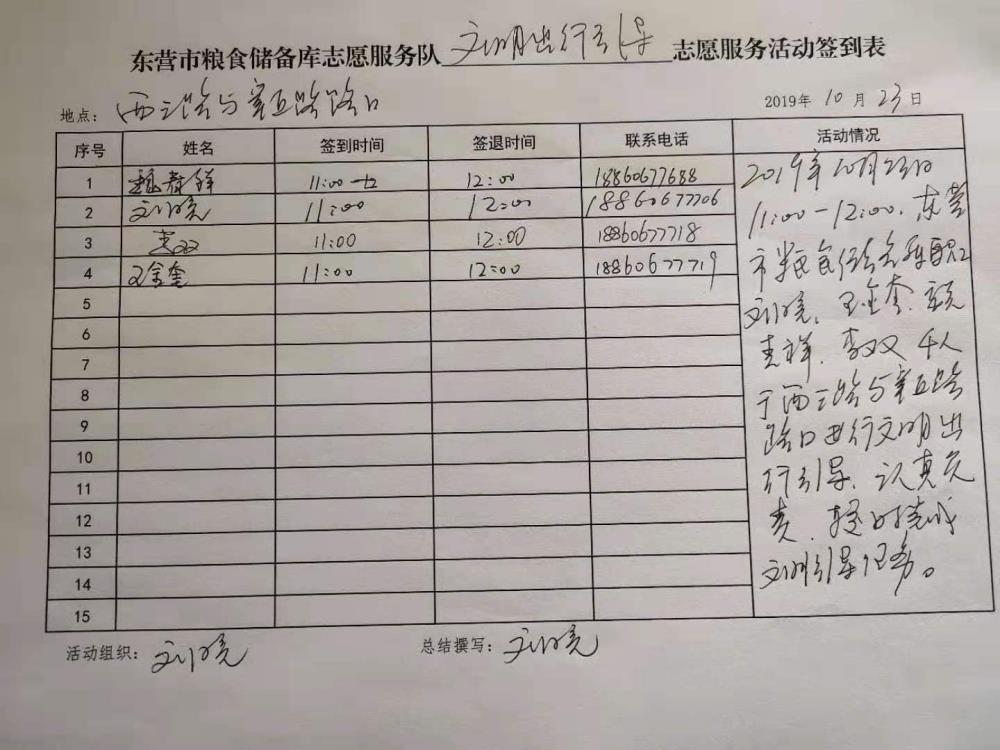 东营市粮食储备库志愿服务队 文明出行引导 志愿服务活动签到表
地点： 西三路与 路路口 2019年 10 月 23 日
序号 姓名 签到时间 签退时间 联系电话 活动情况
1 11:00 12:00 18860677688
2 刘晓 11:00 12:00 18860677706
3 李双 11:00 12:00 18860677718
4 王金奎 11:00 12:00 18860677719
5
6
7
8
9
10
11
12
13
14
15
2019年10月23日
11:00-12:00，东营
市粮食储备库职工
刘晓、王金奎、
吉祥、李双 4人
于西三路与 路
路口进行文明出
行引导，认真负
责，按时完成
文明引导任务。
活动组织： 刘晓 总结撰写： 刘晓